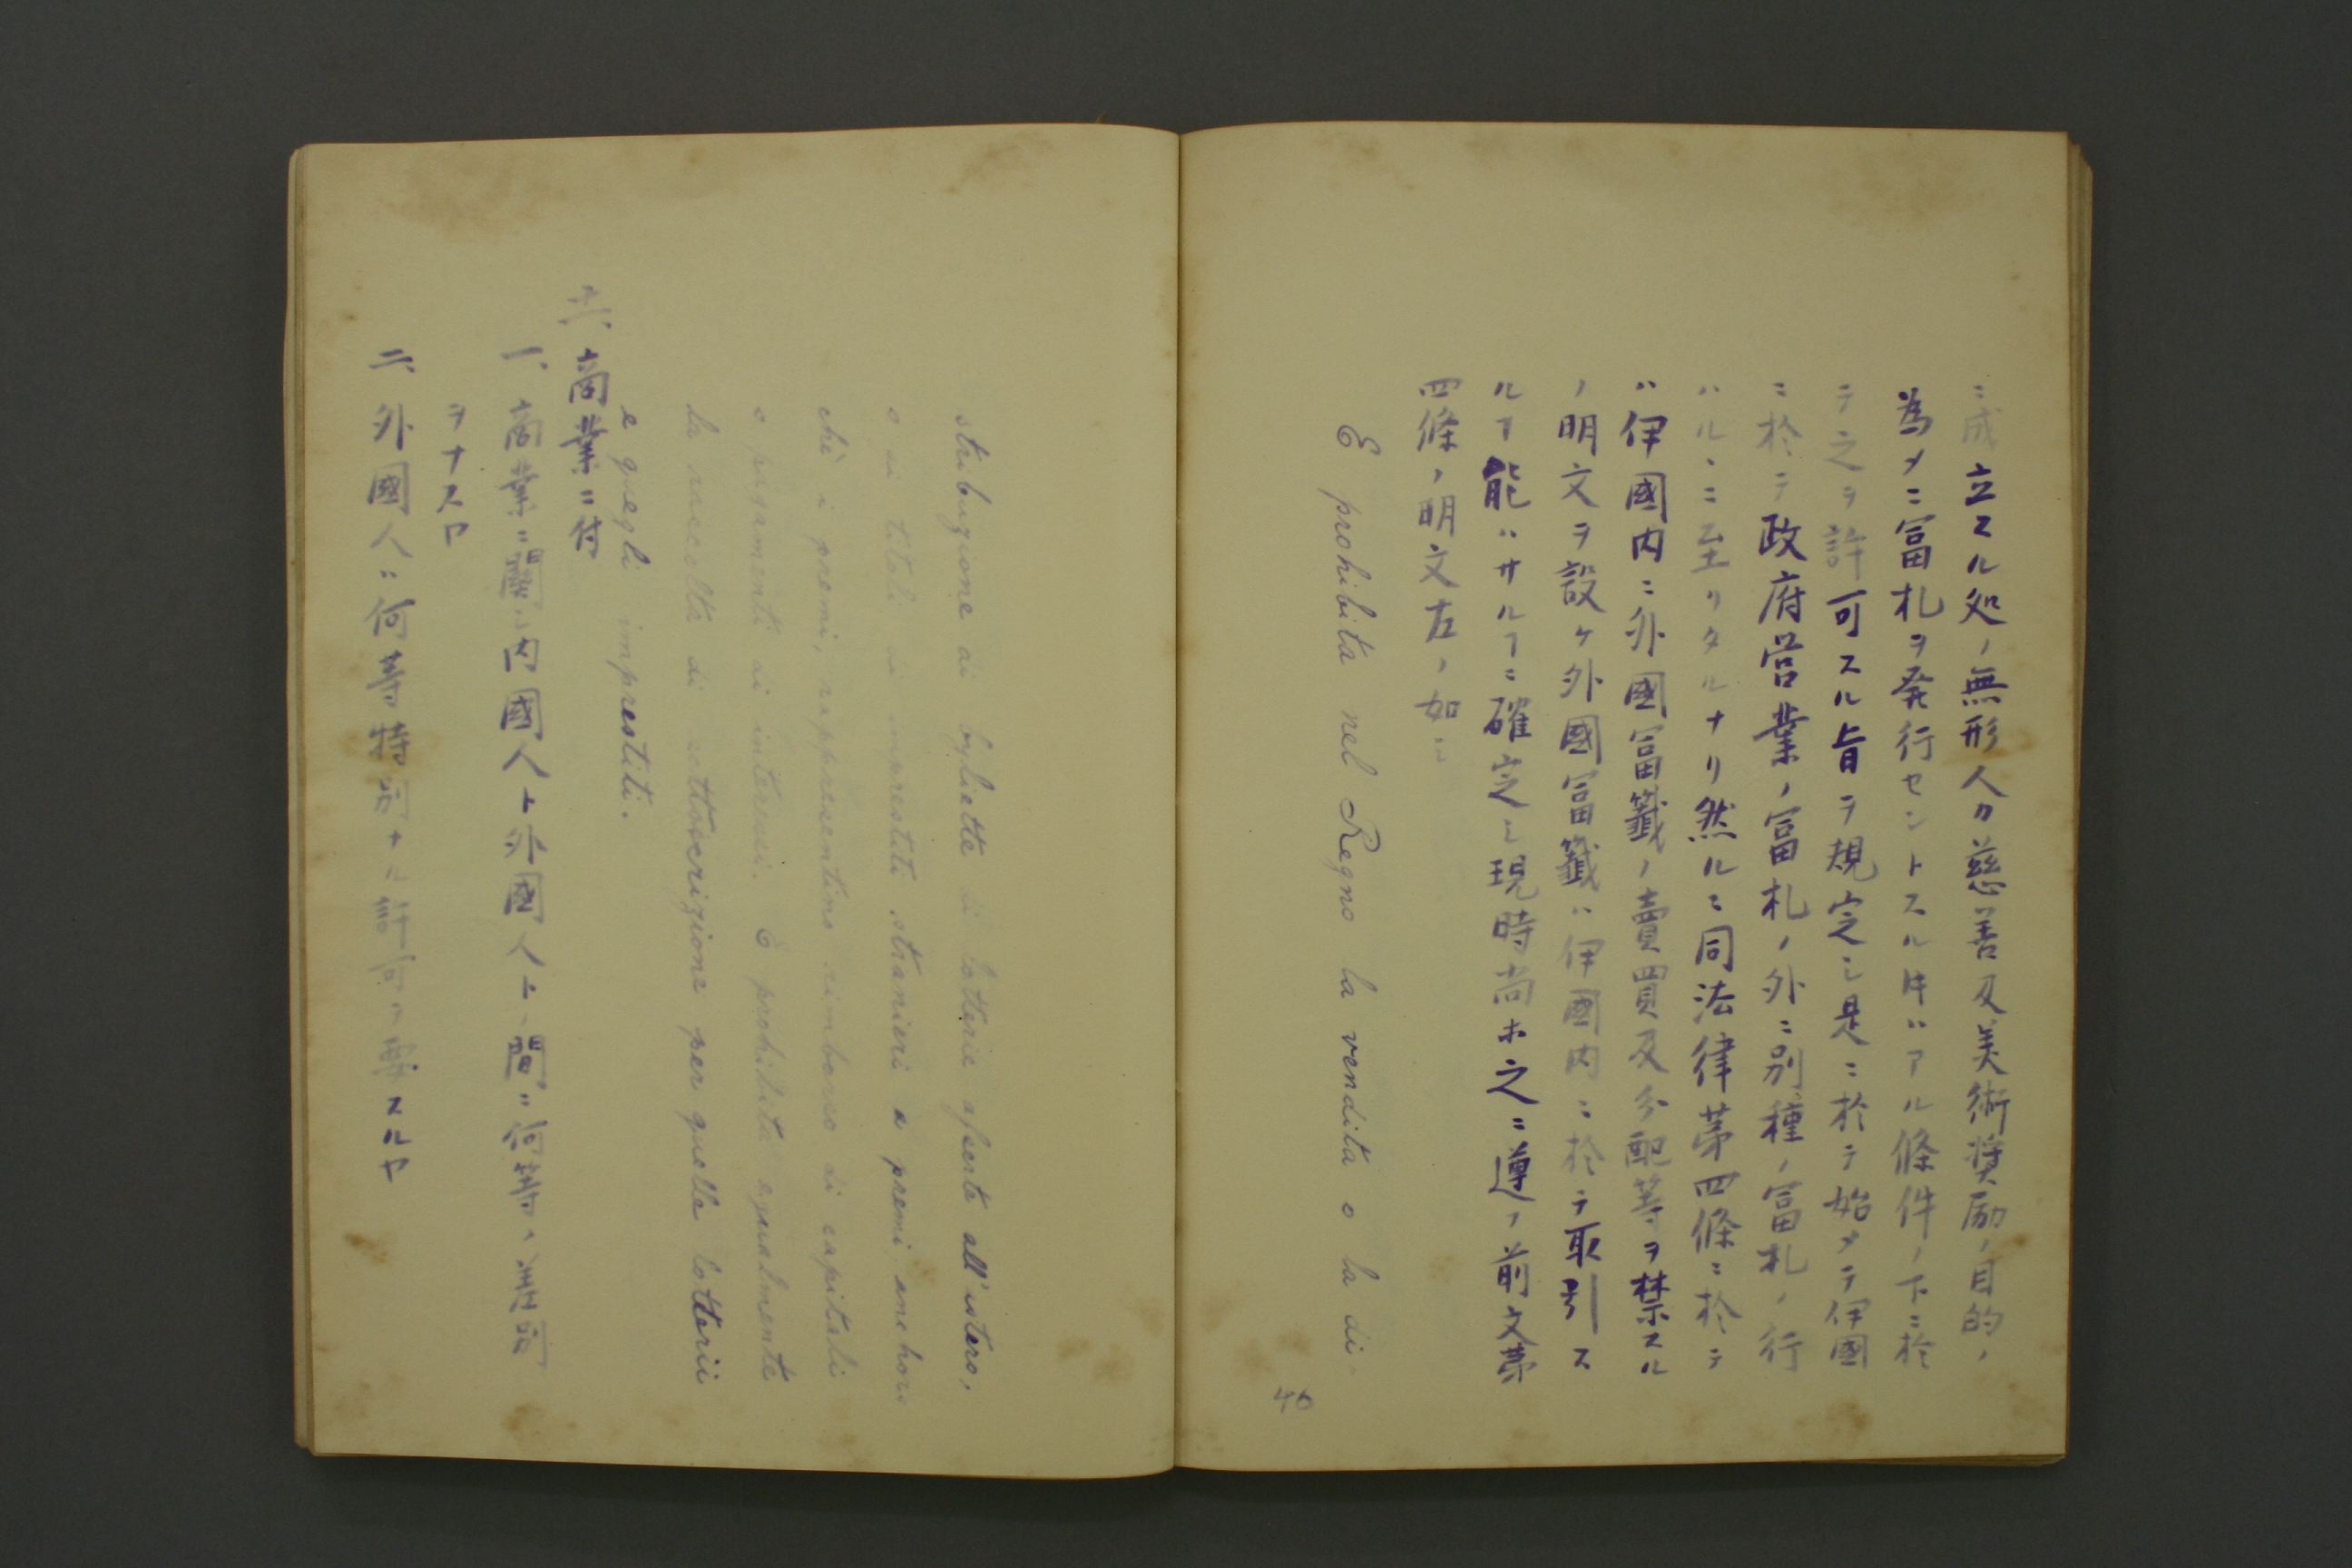 ニ成立スル処ノ無形人カ慈善及美術奨励ノ目的ノ
為メニ富札ヲ発行セントスル片ハアル條件ノ下ニ於
テ之ヲ許可スル旨ヲ規定シ是ニ於テ始メテ伊國
ニ於テ政府営業ノ富札ノ外ニ別種ノ富札ノ行
ハルヽニ至リタルナリ然ルニ同法律第四條ニ於テ
ハ伊國内ニ外國富籤ノ賣買及分配等ヲ禁スル
ノ明文ヲ設ケ外國富籤ハ伊國内ニ於テ取引ス
ルヿ能ハサルヿニ確定シ現時尚ホ之ニ遵ノ前文第
四條ノ明文左ノ如シ
E prohibita nel Regno la vendita o la di-
46
stribuzione di byliette di lotterie aperte all'istero,
o di titoli di imprestiti stranieri a premi, anchor
chè i premi, rappresentino rimborso di capitali
o pagamenti di interessi. E prohibita egualmente
la raccolta di sottoscrizione per quelle lotterii
e quegli imprestiti.
十六、商業ニ付
一、商業ニ關シ内國人ト外國人トノ間ニ何等ノ差別
ヲナスヤ
二、外國人ニ何等特別ナル許可ヲ要スルヤ